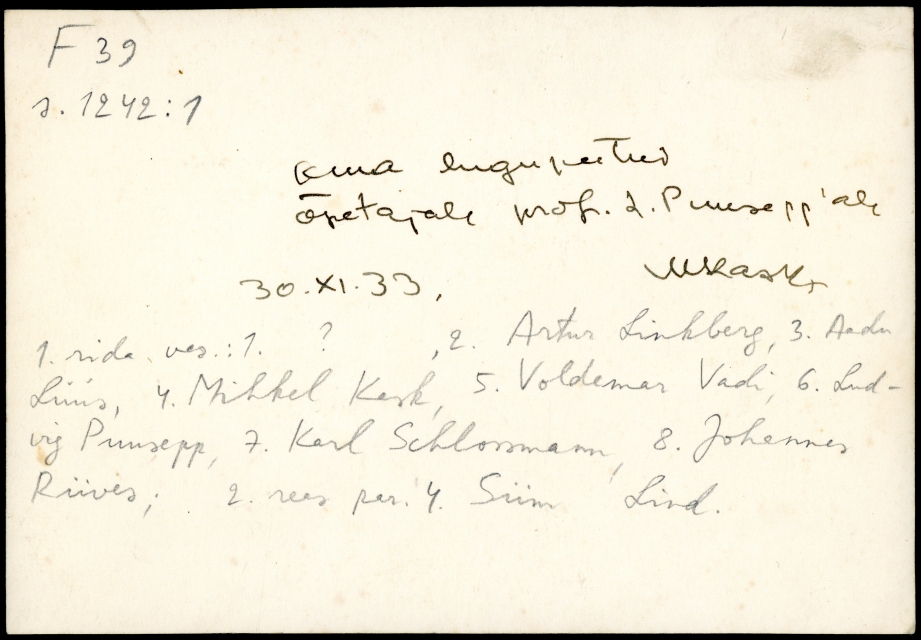 F 39
s. 1242:1
oma lugupeetud
õpetajale prof. L. Puusepp'ale
MKask
30.XI.33,
1. rida vas.: 1. ? , 2. Artur Linkberg, 3. Aadu
Lüüs, 4. Mihkel Kask, 5. Voldemar Vadi, 6. Lud-
vig Puusepp, 7. Karl Schlossmann, 8. Johannes
Riives; 2. reas par. 4. Siim Lind.